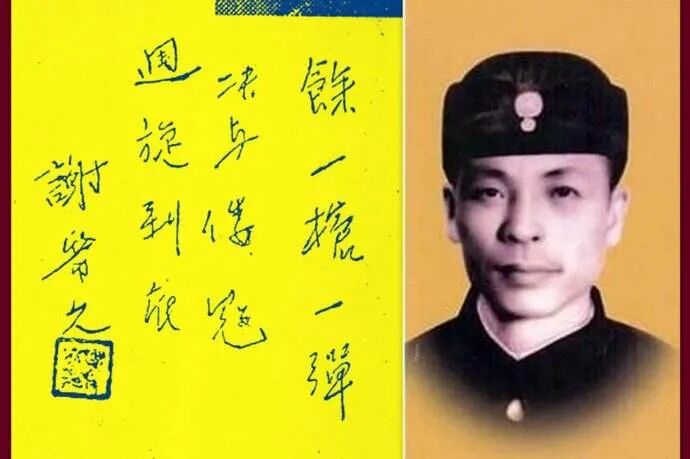 餘一槍一彈
决与倭寇
週旋到底
謝晉元